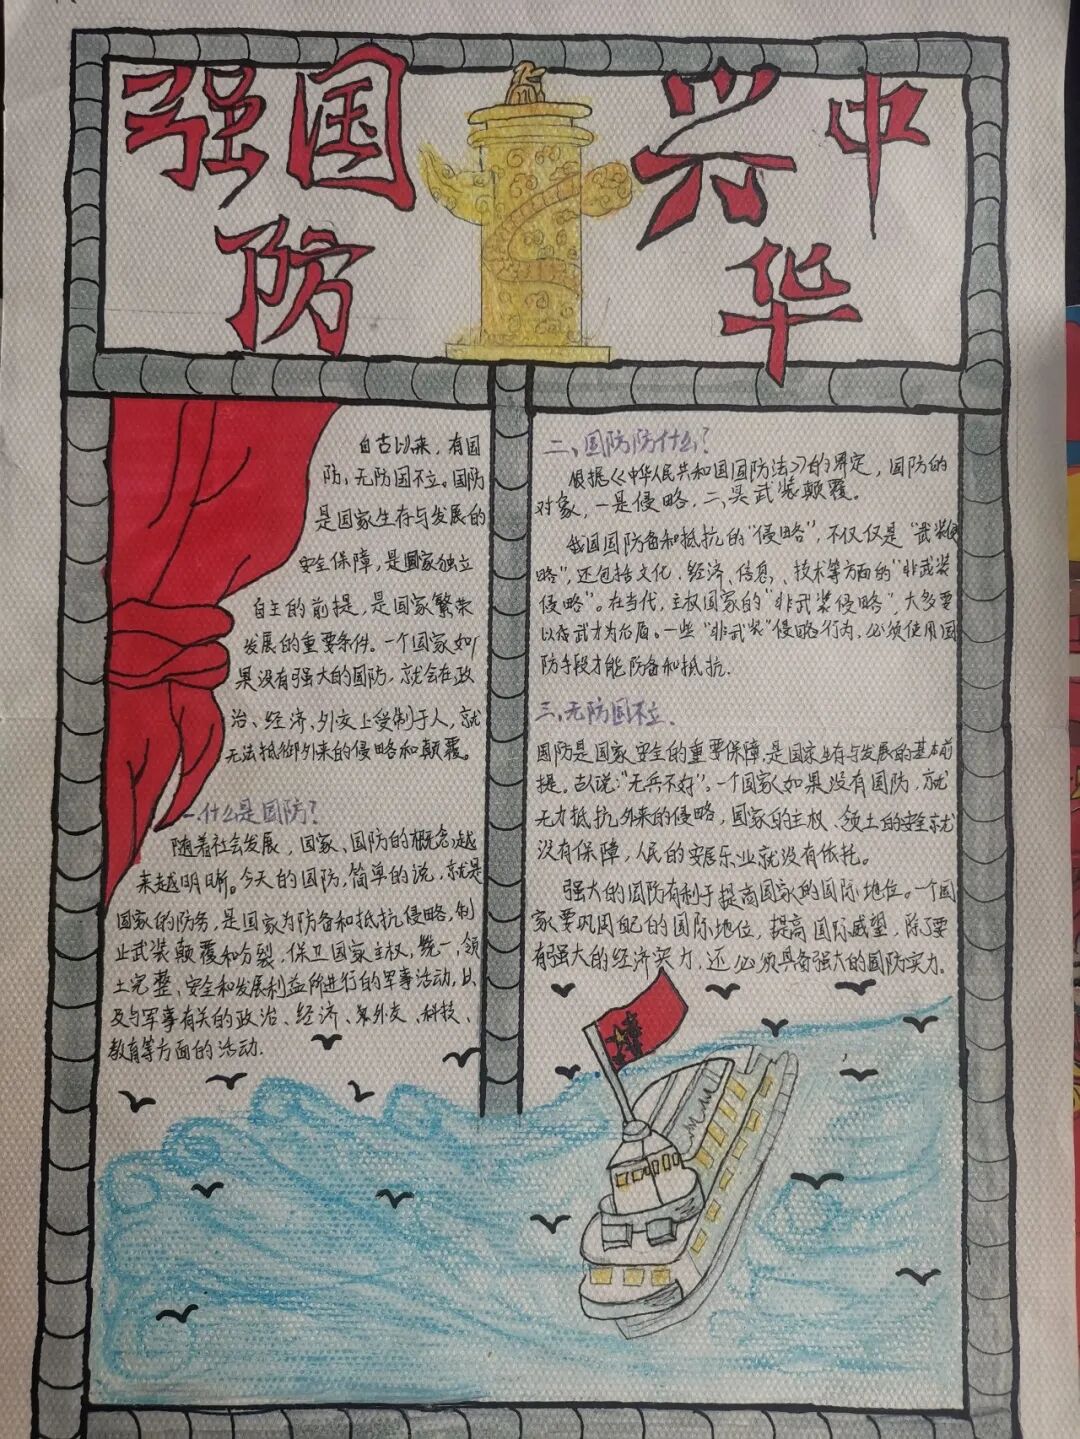 强国
防
兴中
华
自古以来，有国
防，无防国不立。国防
是国家生存与发展的
安全保障，是国家独立
自主的前提，是国家繁荣
发展的重要条件。一个国家如
果没有强大的国防，就会在政
治、经济、外交上受制于人，就
无法抵御外来的侵略和颠覆。
一.什么是国防？
随着社会发展，国家、国防的概念越
来越明晰。今天的国防，简单的说，就是
国家的防务，是国家为防备和抵抗侵略，制
止武装颠覆和分裂，保卫国家主权，统一，领
土完整、安全和发展利益所进行的军事活动，以
及与军事有关的政治、经济、外交、科技、
教育等方面的活动.
二、国防防什么？
根据《中华人民共和国国防法》的界定，国防的
对象，一是侵略，二是武装颠覆。
我国国防备和抵抗的“侵略”，不仅仅是“武装侵
略”，还包括文化、经济、信息、技术等方面的“非武装
侵略”。在当代，主权国家的“非武装侵略”，大多要
以武力为后盾。一些“非武装”侵略行为，必须使用国
防手段才能防备和抵抗.
三.无防国不立.
国防是国家安全的重要保障，是国家生存与发展的基本前
提。古人说：“无兵不好”。一个国家如果没有国防，就
无力抵抗外来的侵略，国家的主权、领土的安全就
没有保障，人民的安居乐业就没有依托。
强大的国防有利于提高国家的国际地位。一个国
家要巩固自己的国际地位，提高国际威望，除了要
有强大的经济实力，还必须具备强大的国防实力.